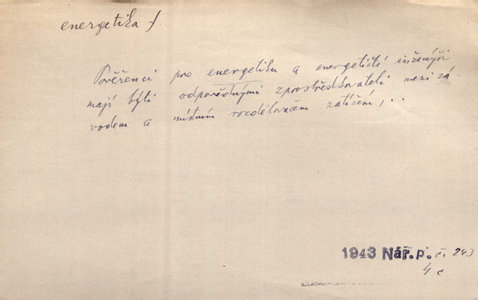 energetika f.
Pověřenci pro energetiku a energetičtí inženýři
mají býti odpovědnými zprostředkovateli mezi zá-
vodem a místním rozdělovačem zatížení, ..
1943 Nář. p. č. 243
4 c